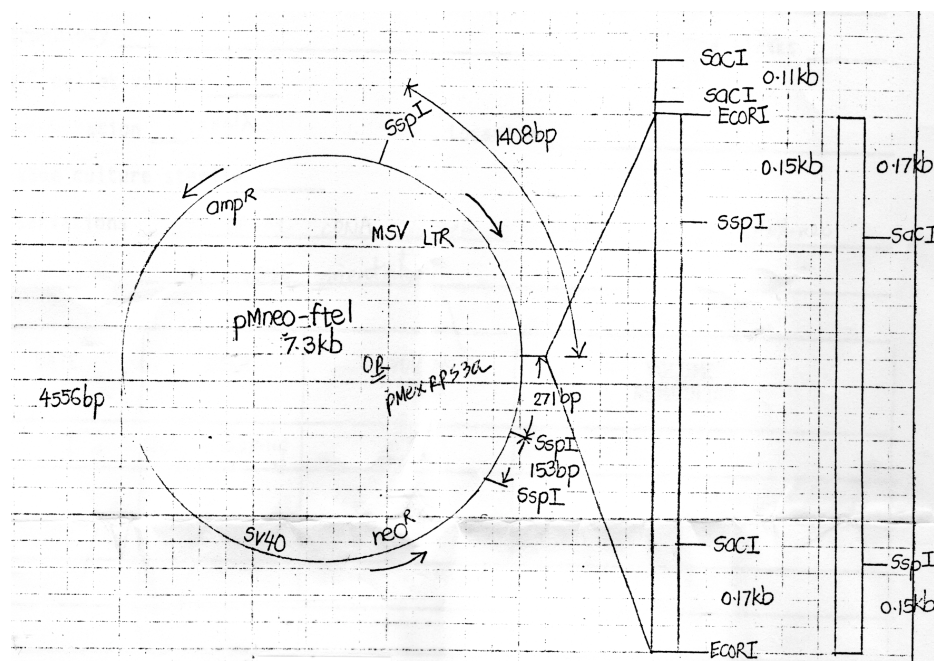 SspI
1408bp
ampR
MSV LTR
pMneo-ftel
7.3kb
OR
pMexRPS3a
4556bp
271bp
SspI
153bp
SspI
SV40
neoR
SacI
0.11kb
SacI
EcoRI
0.15kb
SspI
SacI
0.17kb
EcoRI
0.17kb
SacI
SspI
0.15kb